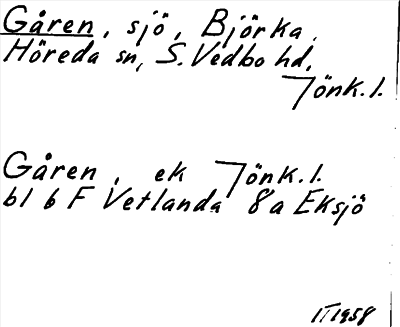 Gåren, sjö, Björka,
Höreda sn, S. Vedbo hd,
Jönk. l.
Gåren, ek Jönk. l.
bl 6 F Vetlanda 8a Eksjö
1958